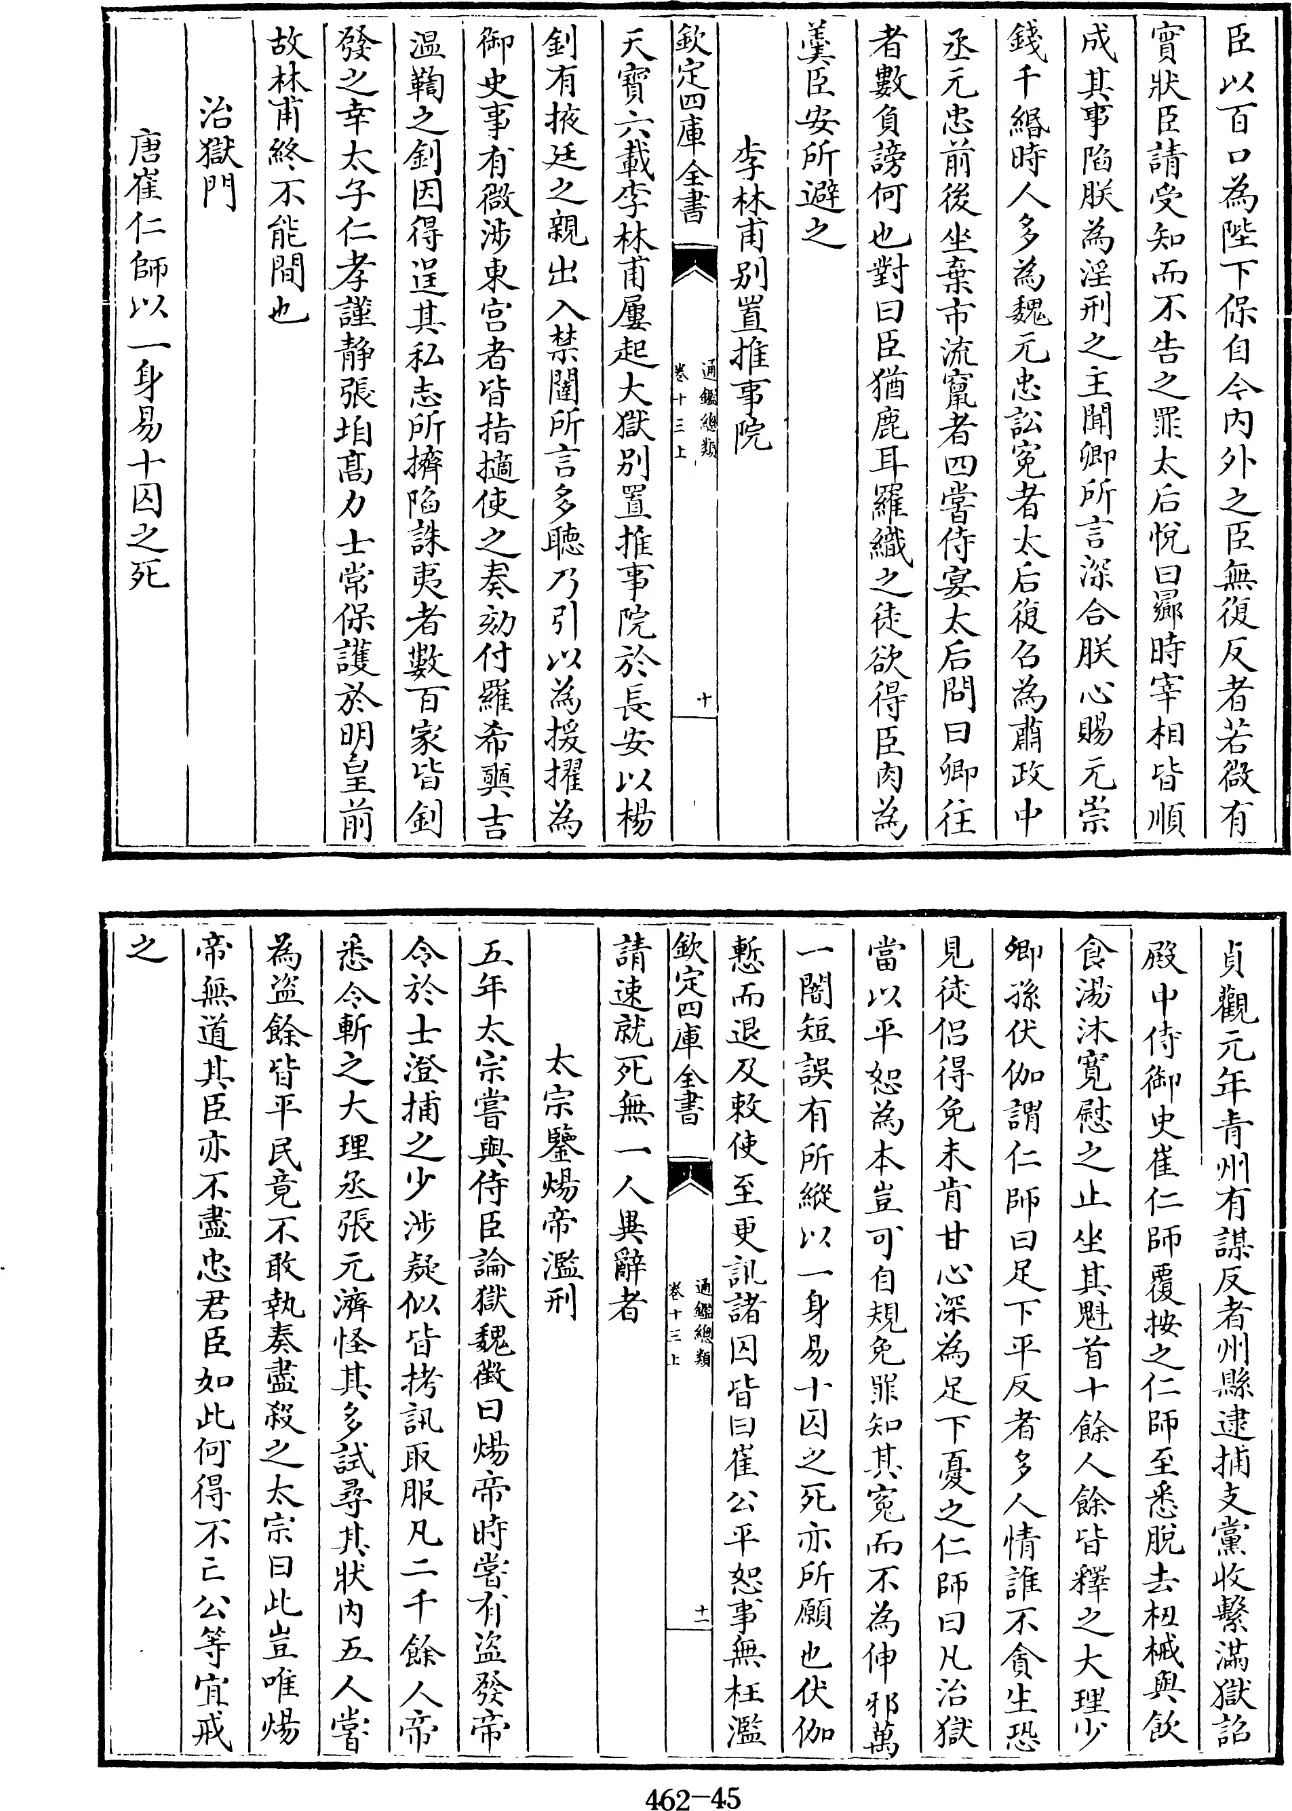 臣以百口為陛下保自今内外之臣無復反者若微有
實狀臣請受知而不告之罪太后悅曰曏時宰相皆順
成其事陷朕為淫刑之主聞卿所言深合朕心賜元崇
錢千緡時人多為魏元忠訟寃者太后復召為肅政中
丞元忠前後坐棄市流竄者四嘗侍宴太后問曰卿往
者數負謗何也對曰臣猶鹿耳羅織之徒欲得臣肉為
羮臣安所避之
李林甫别置推事院
欽定四庫全書
通鑑總類
卷十三上
十
天寳六載李林甫屢起大獄别置推事院於長安以楊
釗有掖廷之親出入禁闥所言多聽乃引以為援擢為
御史事有微涉東宫者皆指擿使之奏劾付羅希奭吉
温鞫之釗因得逞其私志所擠陷誅夷者數百家皆釗
發之幸太子仁孝謹静張垍髙力士常保護於明皇前
故林甫終不能間也
治獄門
唐崔仁師以一身易十囚之死
貞觀元年青州有謀反者州縣逮捕支黨收繫滿獄詔
殿中侍御史崔仁師覆按之仁師至悉脱去杻械與飲
食湯沐寛慰之止坐其魁首十餘人餘皆釋之大理少
卿孫伏伽謂仁師曰足下平反者多人情誰不貪生恐
見徒侣得免未肯甘心深為足下憂之仁師曰凡治獄
當以平恕為本豈可自規免罪知其寃而不為伸邪萬
一闇短誤有所縱以一身易十囚之死亦所願也伏伽
慙而退及敕使至更訊諸囚皆曰崔公平恕事無枉濫
欽定四庫全書
通鑑總類
卷十三上
十一
請速就死無一人異辭者
太宗鑒煬帝濫刑
五年太宗嘗與侍臣論獄魏徵曰煬帝時嘗有盗發帝
令於士澄捕之少涉疑似皆拷訊取服凡二千餘人帝
悉令斬之大理丞張元濟怪其多試尋其狀内五人嘗
為盗餘皆平民竟不敢執奏盡殺之太宗曰此豈唯煬
帝無道其臣亦不盡忠君臣如此何得不亡公等宜戒
之
462-45